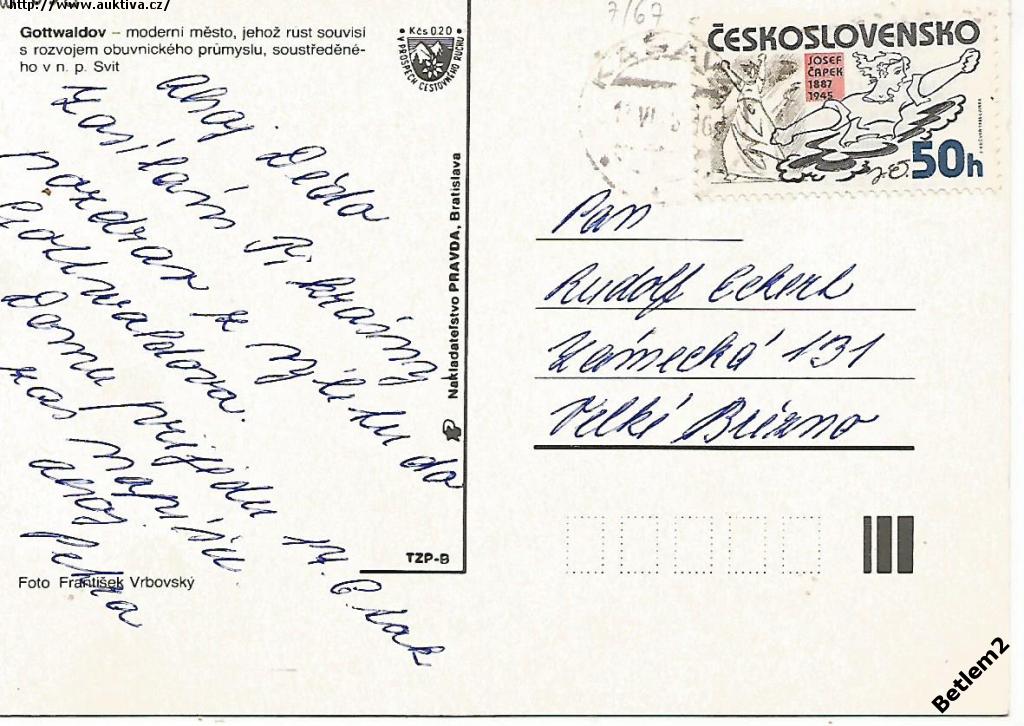 http://www.auktiva.cz/
Gottwaldov – moderní město, jehož rust souvisí
s rozvojem obuvnického průmyslu, soustředěné-
ho v n. p. Svit
Kčs 0.20
V PROSPĚCH CESTOVNÉHO RUCHU
7/67
ČESKOSLOVENSKO
JOSEF
ČAPEK
1887
1945
50h
Ahoj Dědo
Zasílám Ti krásný
pozdrav z výletu do
Gottwaldova.
Domu přijedu 17. 6. tak
zas napíšu
ahoj
Petra
Nakladateľstvo PRAVDA, Bratislava
TZP-B
Foto František Vrbovský
Pan
Rudolf Eckert
Zámecká 131
Velké Březno
Betlem2